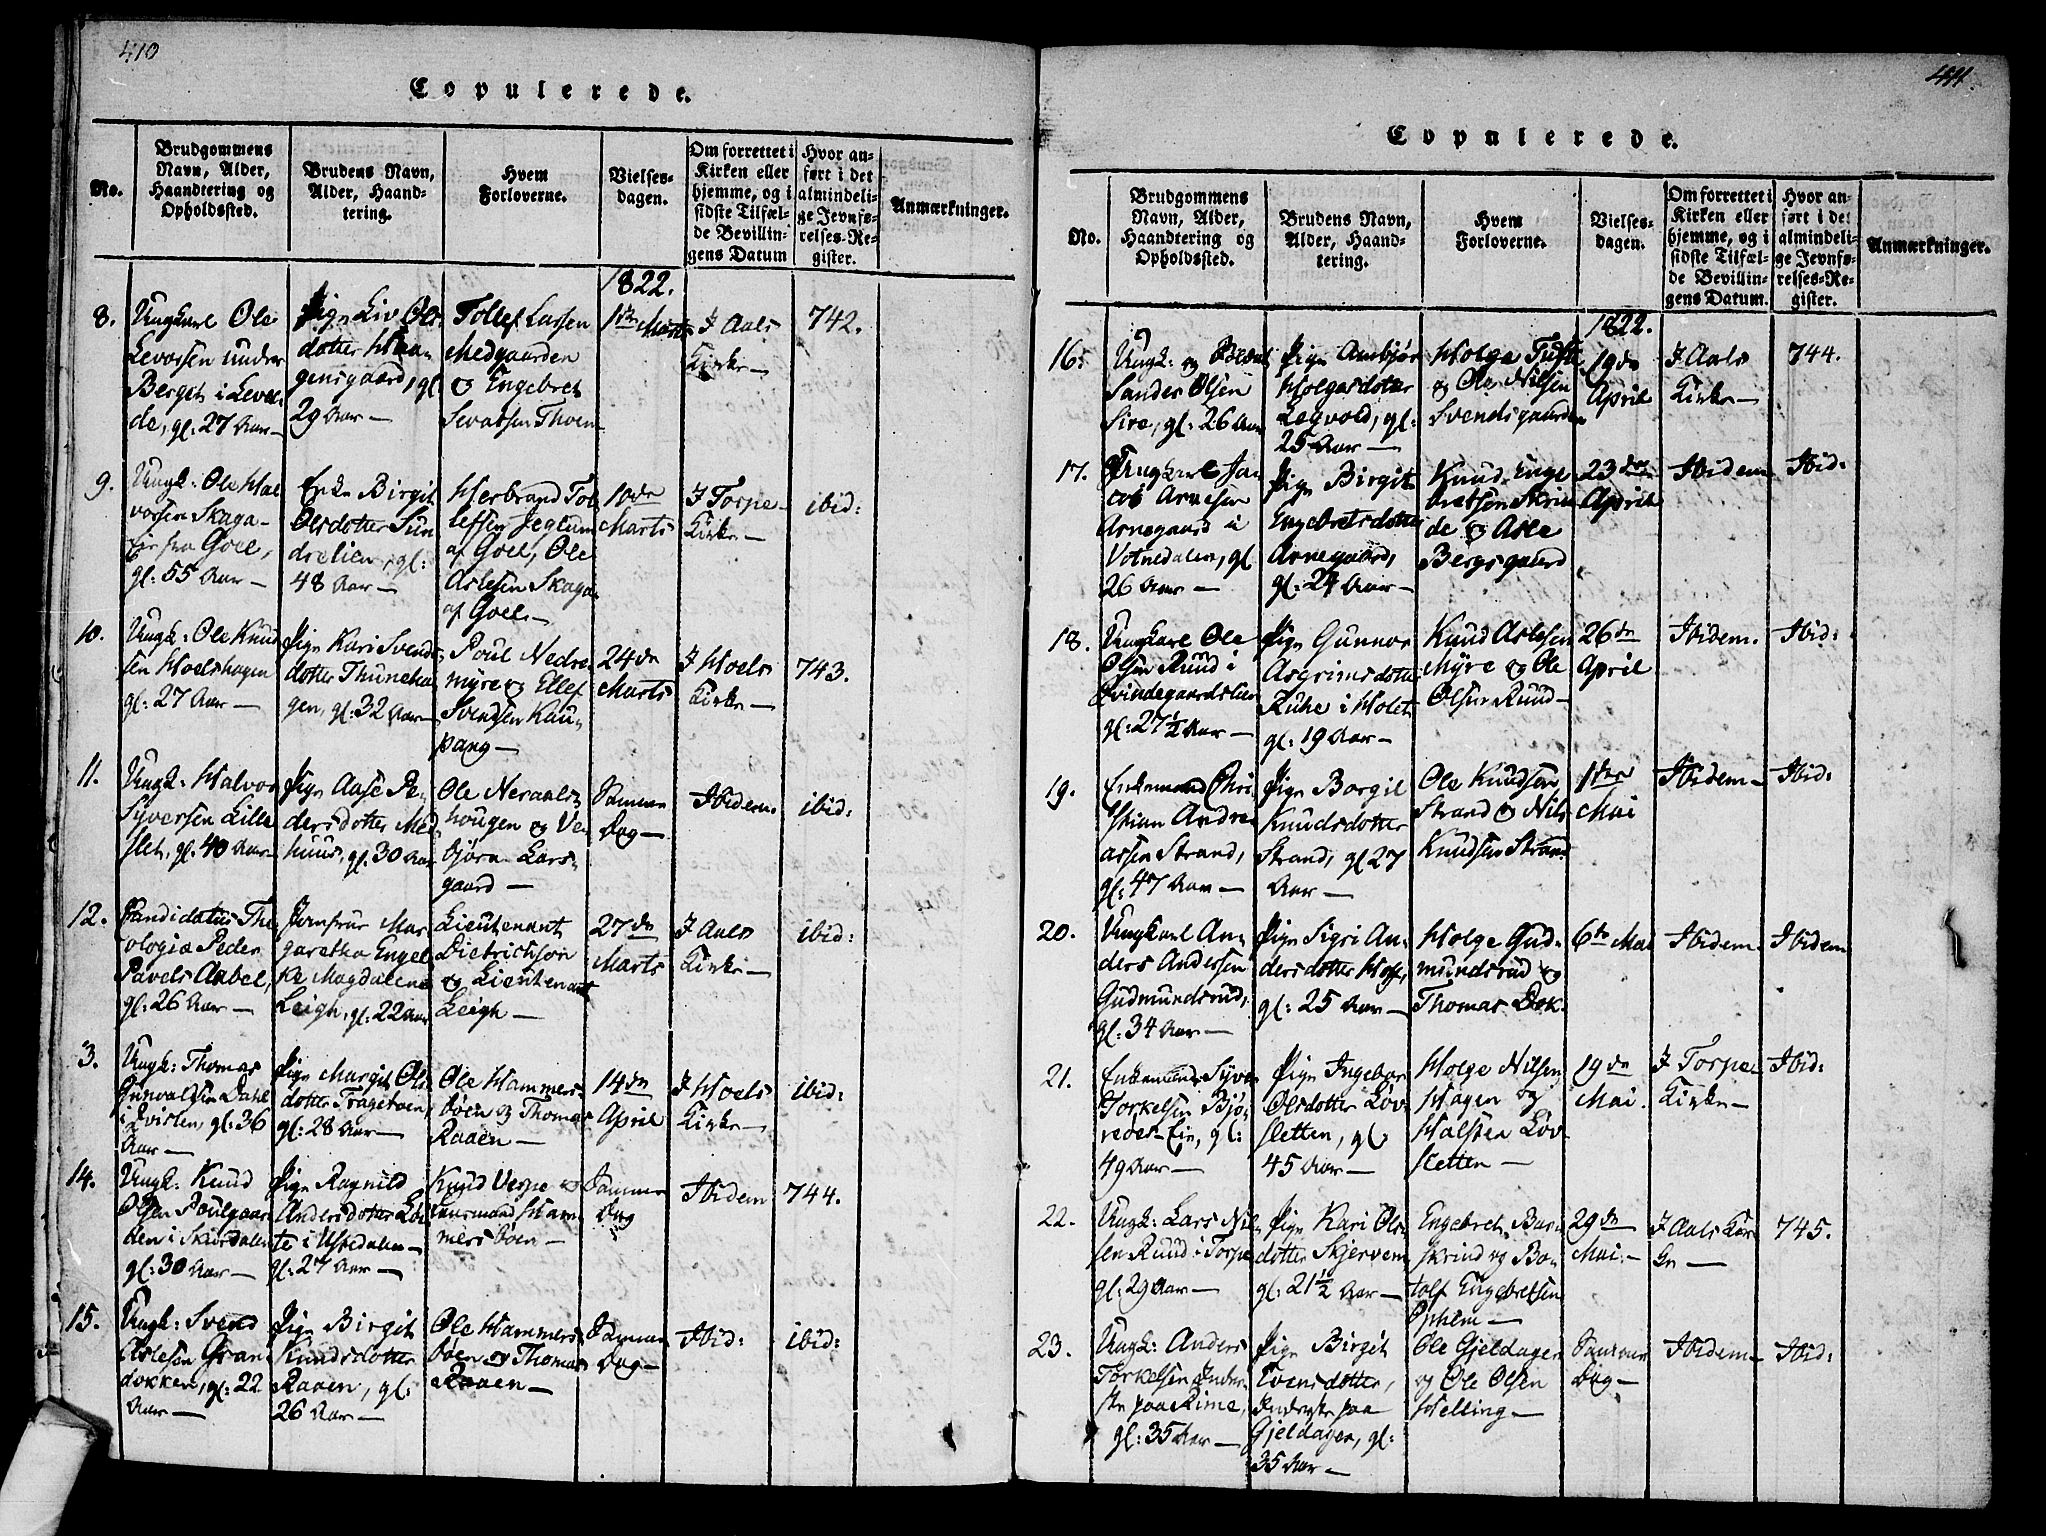 410
Copulerede.
No.
Brudgommens
Navn, Alder,
Haandtering og
Opholdssted.
Brudens Navn,
Alder, Haand-
tering.
Hvem
Forloverne.
Vielses-
dagen.
Om forrettet i
Kirken eller
hjemme, og i
sidste Tilfæl-
de Bevillin-
gens Datum
Hvor an-
ført i det
almindeli-
ge Jevnfø-
relses-Re-
gister.
Anmærkninger.
1822.
8.
Ungkarl Ole
Levorsen under
Berget i Leve-
de, gl: 27 Aar
Pige Liv Ols-
dotter Haa-
gensgaard, gl.
29 Aar
Tollef Larsen
Medgaarden
og Engebret
Sevatsen Thoen
1ste Marts
I Aals
Kirke
742.
9.
Ungk: Ole Hal-
vorsen Skaga-
Eie fra Goel,
gl: 55 Aar
Enke Birgit
Olsdotter Sun-
drelien, gl:
48 Aar
Herbrand Tol-
lefsen Jeglum
af Goel, Ole
Aslesen Skaga
af Goel
10de
Marts
I Torpe
Kirke
ibid:
10.
Ungk: Ole Knud-
sen Hoelshagen
gl: 27 Aar
Pige Kari Svends-
dotter Thuneha-
gen, gl: 32 Aar
Poul Nedre-
myre og Ellef
Svendsen Kau-
pang
24de
Marts
I Hoels
Kirke
743.
11.
Ungk: Halvor
Syversen Lille-
slet, gl. 40 Aar
Pige Aase Pe-
dersdotter Med-
huus, gl. 30 Aar
Ole Neraals-
hougen og Ve-
bjørn Lars-
gaard
Samme
Dag
Ibidem
ibid:
12.
Candidatus The-
ologiæ Peder
Pavels Aabel,
gl: 26 Aar
Jomfrue Mar-
garetha Engel-
ke Magdalena
Leigh, gl. 22 Aar
Lieutenant
Dietrichson
og Lieutenant
Leigh
27de
Marts
I Aals
Kirke
ibid:
3.
Ungk: Thomas
Gunvaldsen Dahl
i Qvislen, gl: 36
Aar
Pige Margit Ols-
dotter Tragetoen,
gl: 28 Aar
Ole Hammers-
bøen og Thomas
Raaen
14de
April
I Hoels
Kirke
ibid:
14.
Ungk: Knud
Olsen Poulgaar-
den i Skurdalen
gl: 30 Aar
Pige Ragnild
Andersdotter
te i Ustedalen
gl: 27 Aar
Knud Vespe og
Lensmand Ham-
mersbøen
Samme
Dag
Ibidem
744.
15.
Ungk: Svend
Aslesen Gran-
dokken, gl: 22
Aar
Pige Birgit
Knudsdotter
Raaen, gl:
26 Aar
Ole Hammers-
bøen og Thomas
Raaen
Samme
Dag
Ibid:
ibid:
411.
Copulerede.
No.
Brudgommens
Navn, Alder,
Haandtering og
Opholdssted.
Brudens Navn,
Alder, Haand-
tering.
Hvem
Forloverne.
Vielses-
dagen.
Om forrettet i
Kirken eller
hjemme, og i
sidste Tilfæl-
de Bevillin-
gens Datum.
Hvor an-
ført i det
almindeli-
ge Jevnfø-
relses-Re-
gister.
Anmærkninger.
1822.
16.
Ungk: og
Sander Olsen
Sire, gl: 26 Aar
Pige Ambjør
Holgersdotter
Legvold, gl:
25 Aar
Holge Tufte
og Ole Nilsen
Svendsgaarden
19de
April
I Aals
Kirke
744.
17.
Ungkarl Ja-
cob Arnesen
Arnegaard i
Votnedalen, gl
26 Aar
Pige Birgit
Engebretsdotter
Arnegaard,
gl: 24 Aar
Knud Enge-
bretsen Skrin-
de og Asle
Bergsgaard
23de
April
Ibidem
Ibid:
18.
Ungkarl Ole
Olsen Ruud i
Qvindegaardslien
gl: 27½ Aar
Pige Gunnor
Asgrimsdotter
Ruhe i Holet
gl: 19 Aar
Knud Aslesen
Myre og Ole
Olsen Ruud
26de
April
Ibidem.
Ibid:
19.
Enkemand Chri-
stian Andre-
assen Strand,
gl: 47 Aar
Pige Borgil
Knudsdotter
Strand, gl 27
Aar
Ole Knudsen
Strand og Nils
Knudsen Strand
1ste
Mai
Ibidem
Ibid:
20.
Ungkarl An-
ders Andersen
Gudmundsrud,
gl: 34 Aar
Pige Sigri An-
dersdotter
gl: 25 Aar
Holge Gud-
mundsrud og
Thomas Dok.
6te Mai
Ibidem
Ibidem
21.
Enkemand Syver
Torkelsen Bjø-
reder-Eie, gl:
49 Aar
Pige Ingebor
Olsdotter Løv-
sletten, gl;
45 Aar
Holge Nilsen
Hagen og
Halsten Løv-
sletten
19de
Mai.
I Torpe
Kirke
Ibid:
22.
Ungk: Lars Nil-
sen Ruud i Torpe
gl: 29 Aar
Pige Kari Ols-
dotter Skjervem
gl: 21½ Aar
Engebret Bari-
skrind og Bo-
tolf Engebretsen
Opheim
29de
Mai.
I Aals Kir-
ke
745.
23.
Ungk: Anders
Torkelsen Inder-
ste paa Rime,
gl: 35 Aar
Pige Birgit
Evensdotter,
Inderste paa
Gjeldager, gl:
35 Aar
Ole Gjeldager
og Ole Olsen
Helling
Samme
Dag
Ibidem
Ibid: